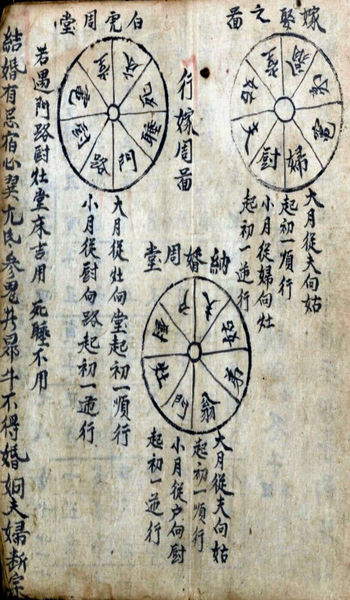 嫁娶之啚
夫
姑
堂
翁
竈
婦
厨
大月從夫向姑
起初一順行
小月從婦向灶
起初一逆行
行嫁周啚
納婚周堂
夫
姑
翁
門
厨
户
大月從夫向姑
起初一順行
小月從户向厨
起初一逆行
白虎周堂
堂
床
死
睡
門
路
厨
竈
大月從灶向堂起初一順行
小月從厨向路起初一逆行
若遇門路厨灶堂床吉用 死睡不用
結婚有忌宿心翌亢氐參鬼井昴牛不得婚姻夫婦断宗